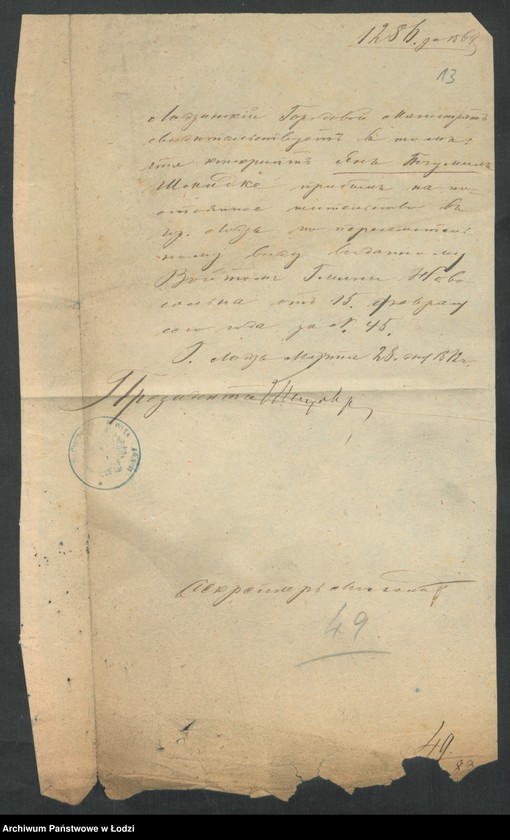 1286. за 1869
13
Лодзинскій Городовой Магистратъ
свидѣтельствуетъ въ томъ,
что контрактъ Янъ Богумилъ
прибылъ на по-
стоянное жительство въ
гр. Лодзь по переселен-
ному виду выданному
Войтомъ Гмины Ново-
сольна отъ 15. февраля
сего года за №. 45.
Г. Лодзь Марта 28. дня 1872 г.
Президентъ
Секретарь
49
49
83
Archiwum Państwowe w Łodzi